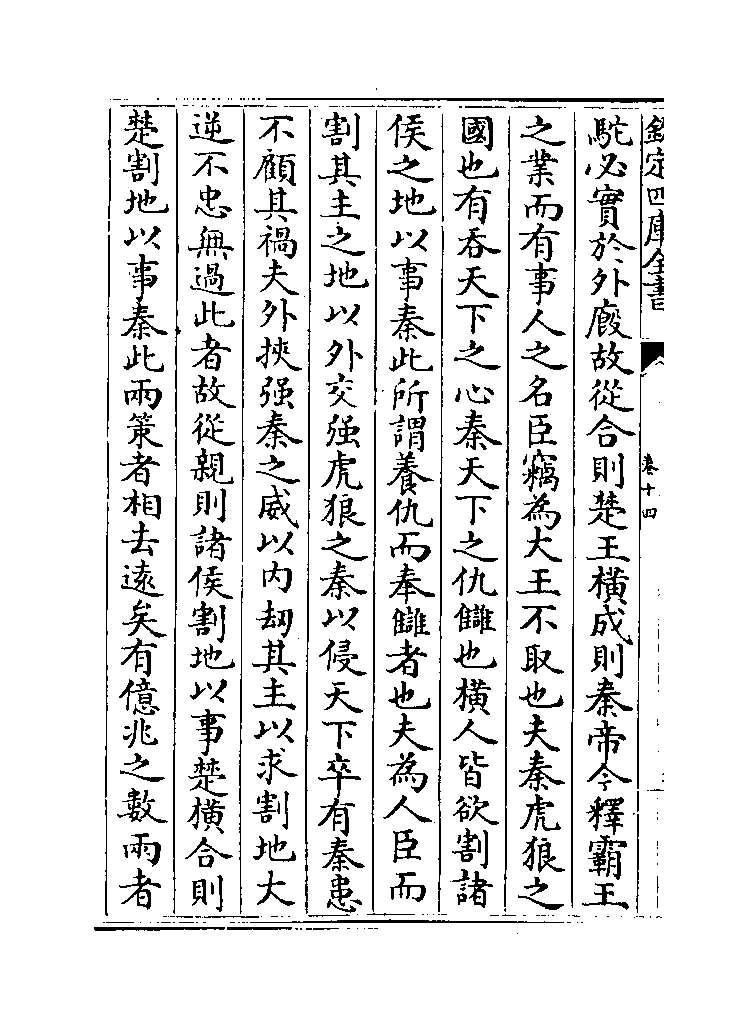 欽定四庫全書
卷十四
駝必實於外廄故從合則楚王橫成則秦帝今釋霸王
之業而有事人之名臣竊為大王不取也夫秦虎狼之
國也有吞天下之心秦天下之仇讎也橫人皆欲割諸
侯之地以事秦此所謂養仇而奉讎者也夫為人臣而
割其主之地以外交强虎狼之秦以侵天下卒有秦患
不顧其禍夫外挾强秦之威以内刼其主以求割地大
逆不忠無過此者故從親則諸侯割地以事楚橫合則
楚割地以事秦此兩策者相去遠矣有億兆之數兩者